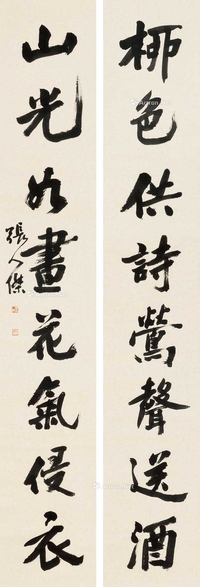 柳色供詩鶯聲送酒
山光如畫花氣侵衣
張人傑